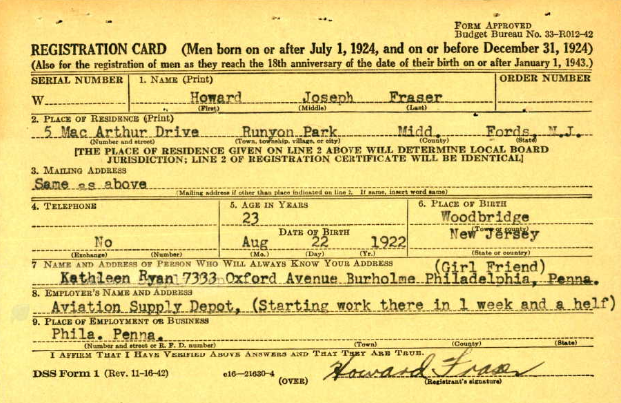 FORM APPROVED
Budget Bureau No. 33-R012-42
REGISTRATION CARD (Men born on or after July 1, 1924, and on or before December 31, 1924)
(Also for the registration of men as they reach the 18th anniversary of the date of their birth on or after January 1, 1943.)
SERIAL NUMBER 1. NAME (Print) ORDER NUMBER
W Howard Joseph Fraser
(First) (Middle) (Last)
2. PLACE OF RESIDENCE (Print)
5 Mac Arthur Drive Runyon Park Midd. Fords, N.J.
(Number and street) (Town, township, village, or city) (County) (State)
[THE PLACE OF RESIDENCE GIVEN ON LINE 2 ABOVE WILL DETERMINE LOCAL BOARD
JURISDICTION; LINE 2 OF REGISTRATION CERTIFICATE WILL BE IDENTICAL]
3. MAILING ADDRESS
Same as above
(Mailing address if other than place indicated on line 2. If same, insert word same)
4. TELEPHONE 5. AGE IN YEARS 6. PLACE OF BIRTH
23 Woodbridge
DATE OF BIRTH (Town or county)
No Aug 22 1922 New Jersey
(Exchange) (Number) (Mo.) (Day) (Yr.) (State or country)
7 NAME AND ADDRESS OF PERSON WHO WILL ALWAYS KNOW YOUR ADDRESS (Girl Friend)
Kathleen Ryan 7333 Oxford Avenue Burholme Philadelphia, Penna.
8. EMPLOYER'S NAME AND ADDRESS
Aviation Supply Depot, (Starting work there in 1 week and a helf)
9. PLACE OF EMPLOYMENT OR BUSINESS
Phila. Penna.
(Number and street or R. F. D. number) (Town) (County) (State)
I AFFIRM THAT I HAVE VERIFIED ABOVE ANSWERS AND THAT THEY ARE TRUE.
DSS Form 1 (Rev. 11-16-42) c16-21630-4 Howard Fraser
(OVER) (Registrant's signature)